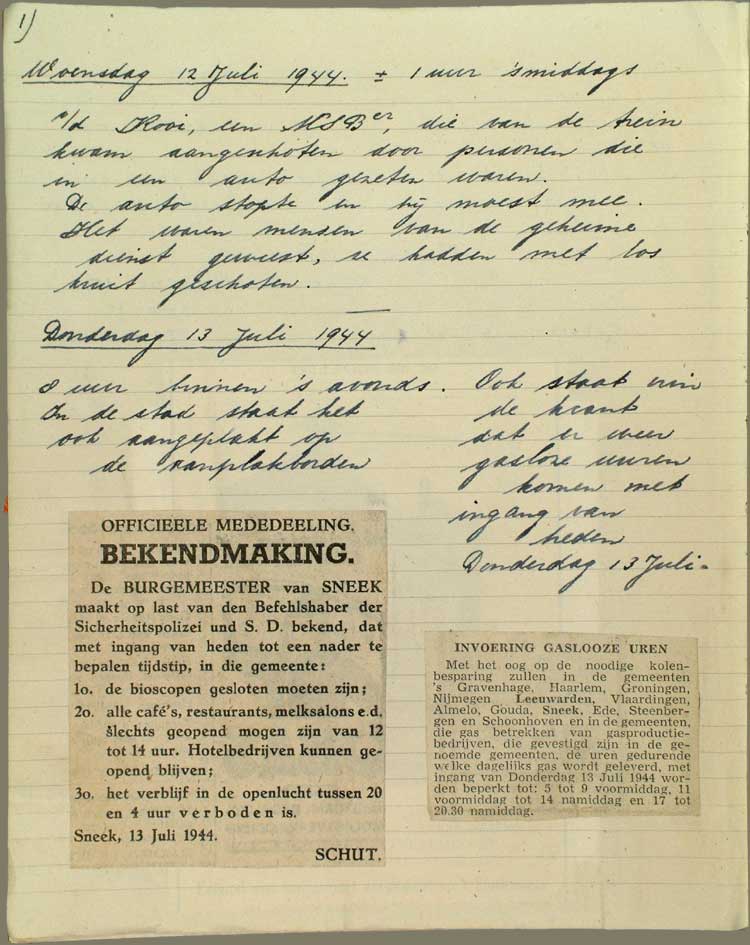 1)
Woensdag 12 Juli 1944. ± 1 uur 'smiddags
v/d Kooi, een NSBer, die van de trein
kwam aangeschoten door personen die
in een auto gezeten waren.
De auto stopte en hij moest mee.
Het waren mensen van de geheime
dienst geweest, ze hadden met los
kruit geschoten.
Donderdag 13 Juli 1944
8 uur binnen 's avonds.
In de stad staat het
ook aangeplakt op
de aanplakborden
Ook staat er in
de krant
dat er weer
gasloze uuren
komen met
ingang van
heden
Donderdag 13 Juli.
OFFICIEELE MEDEDEELING.
BEKENDMAKING.
De BURGEMEESTER van SNEEK
maakt op last van den Befehlshaber der
Sicherheitspolizei und S. D. bekend, dat
met ingang van heden tot een nader te
bepalen tijdstip, in die gemeente:
1o. de bioscopen gesloten moeten zijn;
2o. alle café's, restaurants, melksalons e.d.
slechts geopend mogen zijn van 12
tot 14 uur. Hotelbedrijven kunnen ge-
opend blijven;
3o. het verblijf in de openlucht tussen 20
en 4 uur verboden is.
Sneek, 13 Juli 1944.
SCHUT.
INVOERING GASLOOZE UREN
Met het oog op de noodige kolen-
besparing zullen in de gemeenten
's Gravenhage, Haarlem, Groningen,
Nijmegen Leeuwarden, Vlaardingen,
Almelo, Gouda, Sneek, Ede, Steenber-
gen en Schoonhoven en in de gemeenten,
die gas betrekken van gasproductie-
bedrijven, die gevestigd zijn in de ge-
noemde gemeenten, de uren gedurende
welke dagelijks gas wordt geleverd, met
ingang van Donderdag 13 Juli 1944 wor-
den beperkt tot: 5 tot 9 voormiddag, 11
voormiddag tot 14 namiddag en 17 tot
20.30 namiddag.